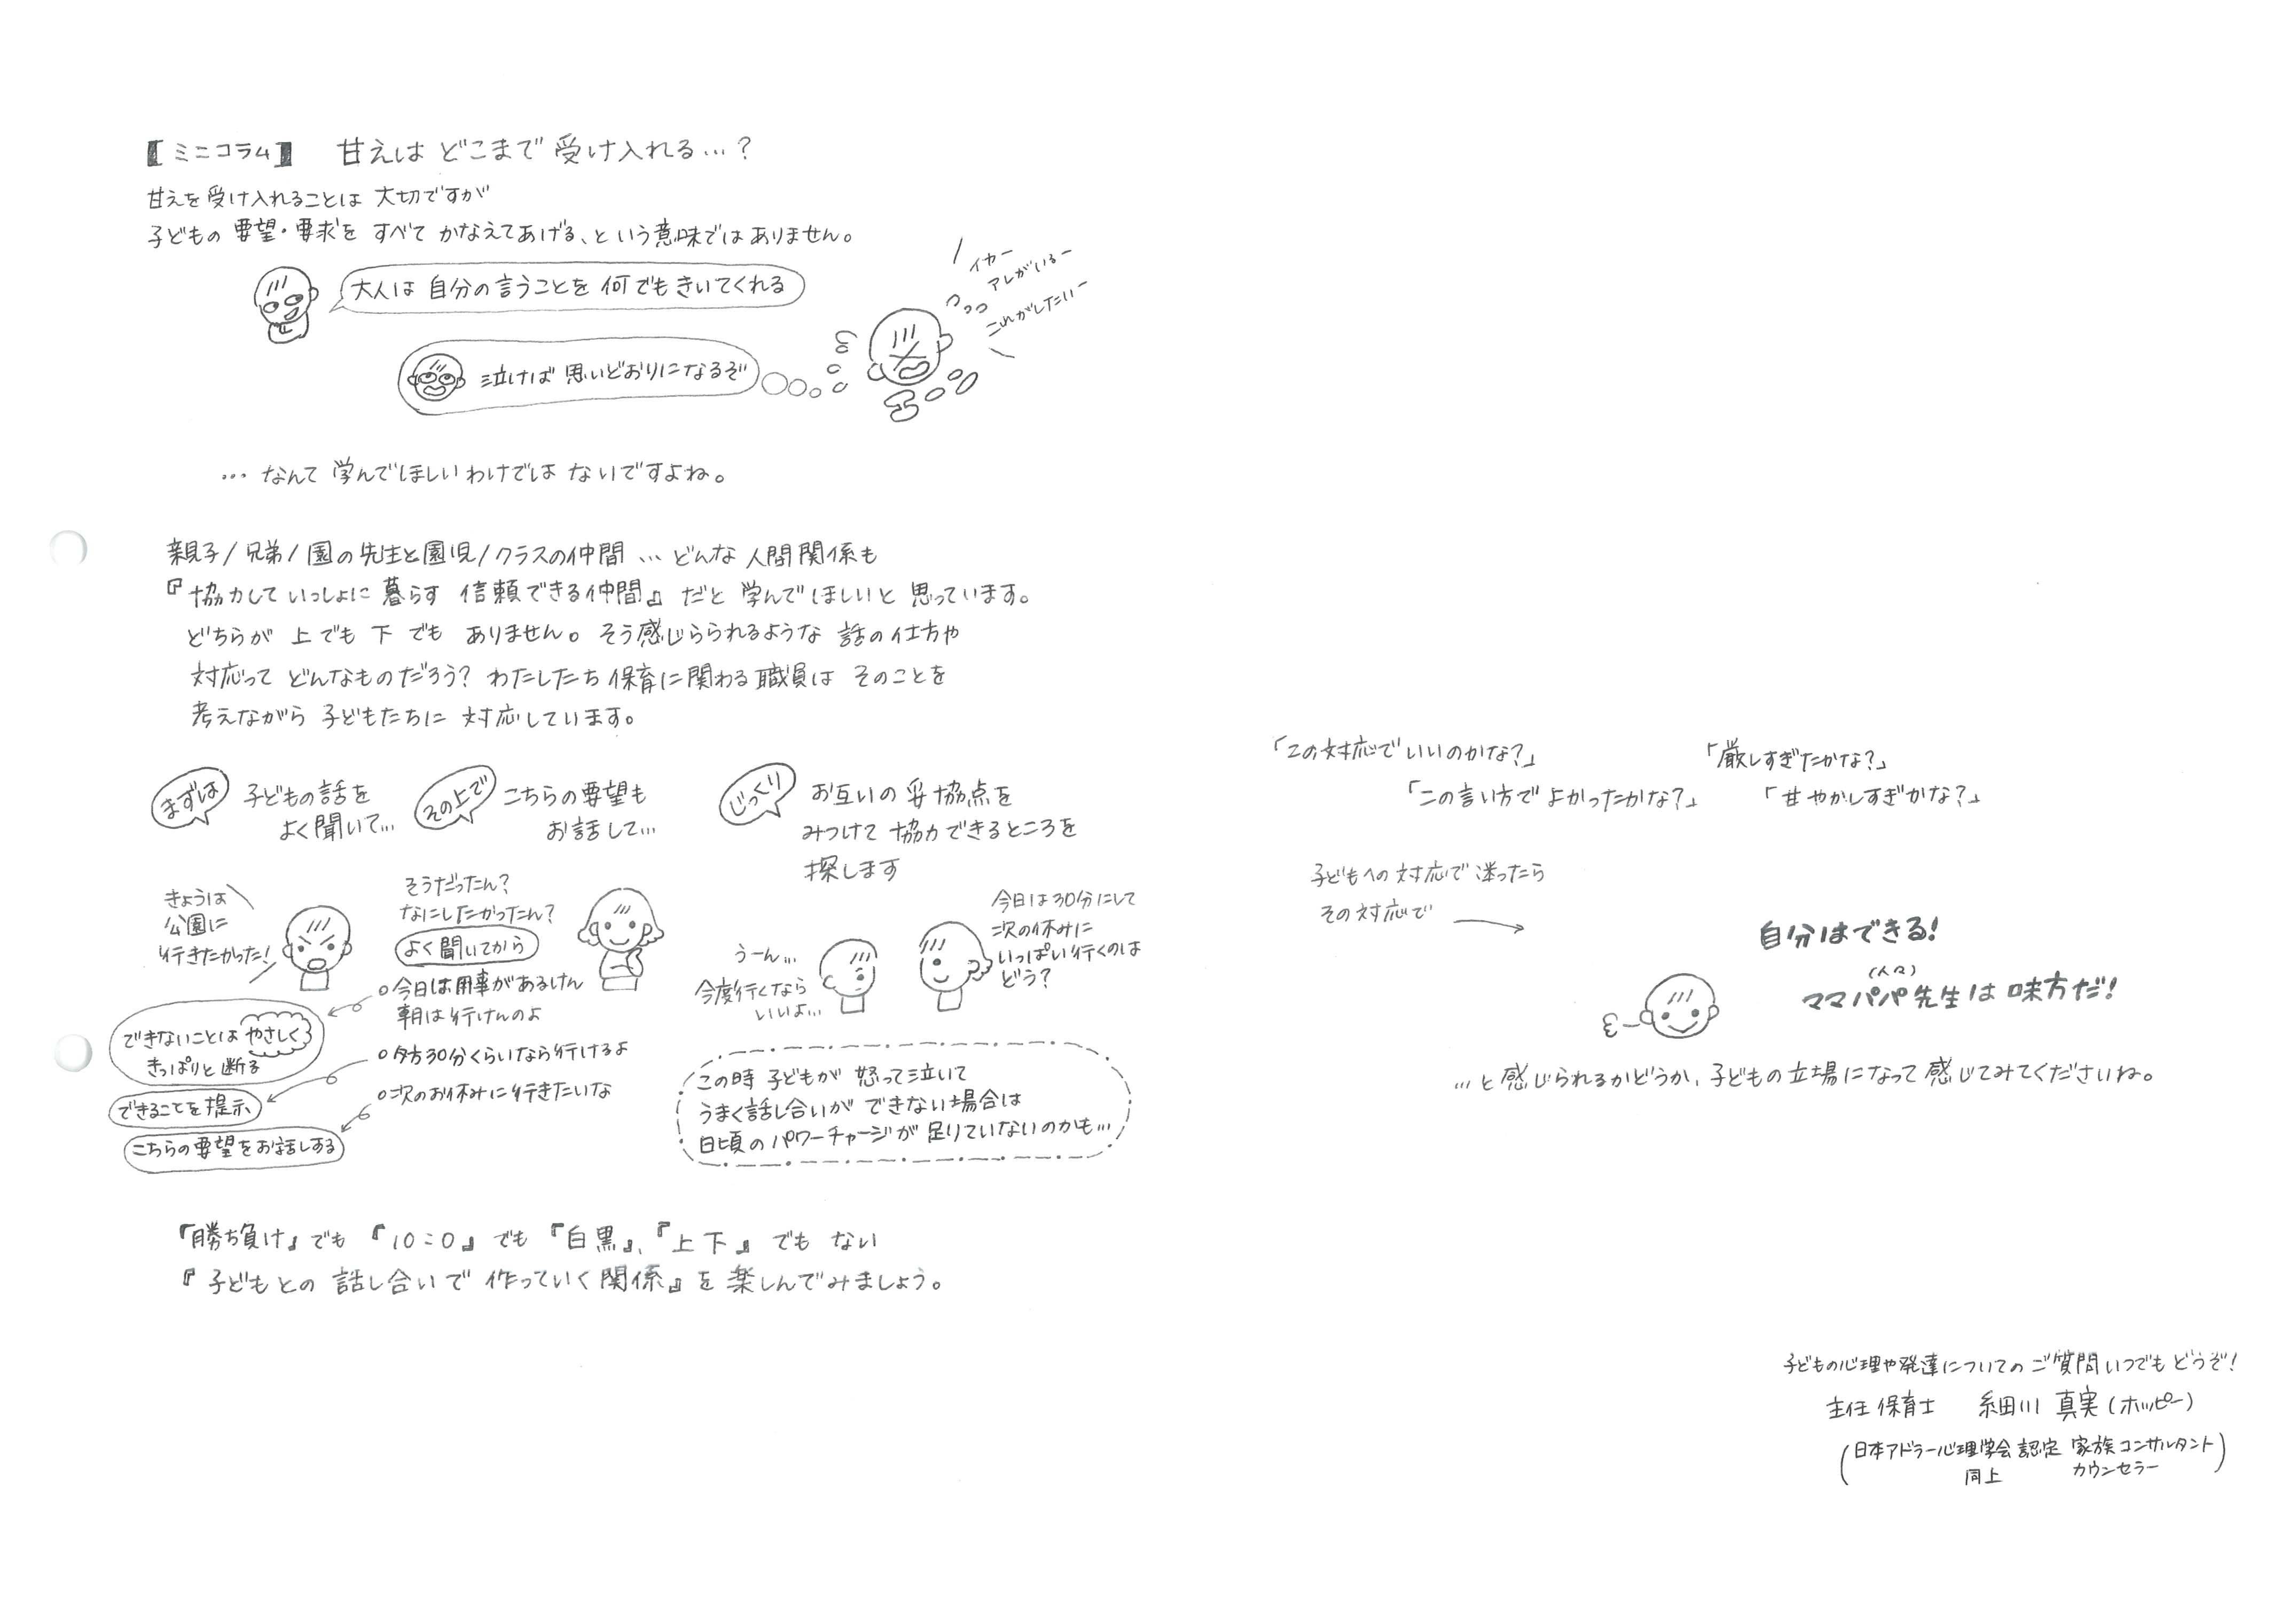 【ミニコラム】 甘えは どこまで 受け入れる…？
甘えを受け入れることは 大切ですが
子どもの 要望・要求を すべて かなえてあげる、という意味では ありません。
大人は 自分の言うことを 何でも きいてくれる
イヤー
アレがいるー
これがしたいー
泣けば 思いどおりになるぞ
… なんて 学んでほしいわけでは ないですよね。
親子/兄弟/園の先生と園児/クラスの仲間 … どんな 人間関係も
『協力して いっしょに 暮らす 信頼できる仲間』 だと 学んで ほしいと 思っています。
どちらが 上でも 下 でも ありません。そう感じらられるような 話の仕方や
対応って どんなものだろう？ わたしたち 保育に関わる職員は そのことを
考えながら 子どもたちに 対応しています。
まずは 子どもの話を
よく聞いて…
その上で こちらの要望も
お話して…
じっくり お互いの 妥協点を
みつけて 協力できるところを
探します
きょうは
公園に
行きたかった！
そうだったん？
なにしたかったん？
よく聞いてから
○今日は用事があるけん
朝は行けんのよ
○夕方30分くらいなら行けるよ
○次のお休みに行きたいな
できないことは やさしく
きっぱりと断る
できることを提示
こちらの要望をお話しする
うーん…
今度行くなら
いいよ…
今日は30分にして
次の休みに
いっぱい行くのは
どう？
この時 子どもが 怒って泣いて
うまく話し合いが できない場合は
日頃の パワーチャージが 足りていないのかも…
『勝ち負け』でも 『10：0』でも 『白黒』、『上下』 でも ない
『子どもとの 話し合いで 作っていく関係』を楽しんでみましょう。
「この対応で いいのかな？」
「厳しすぎたかな？」
「この言い方で よかったかな？」
「甘やかしすぎかな？」
子どもへの 対応で 迷ったら
その対応で →
自分はできる！
(人々)
ママパパ先生は 味方だ！
…と感じられるかどうか、子どもの立場になって 感じてみてくださいね。
子どもの心理や発達についてのご質問いつでもどうぞ！
主任 保育士 細川 真実(ホッピー)
(日本アドラー心理学会認定 家族コンサルタント
同上 カウンセラー)